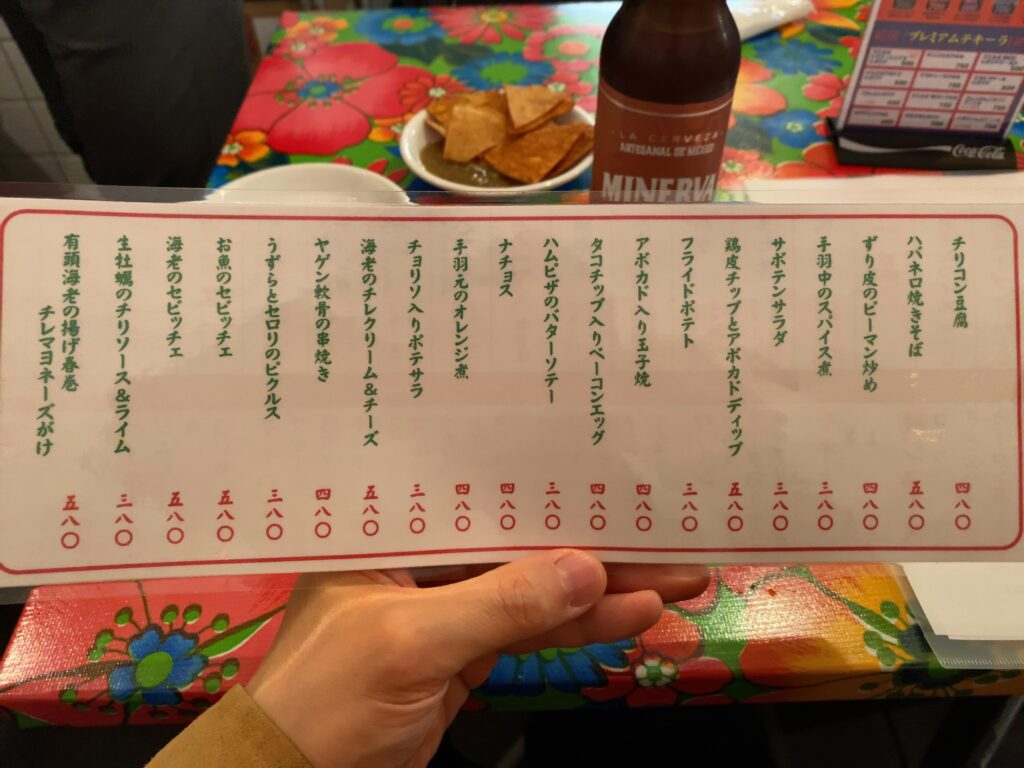 LA CERVEZA
ARTESANAL DE MÉXICO
MINERVA
プレミアムテキーラ
Coca-Cola
チリコン豆腐 四八〇
ハバネロ焼きそば 五八〇
ずり皮のピーマン炒め 四八〇
手羽中のスパイス煮 三八〇
サボテンサラダ 三八〇
鶏皮チップとアボカドディップ 五八〇
フライドポテト 三八〇
アボカド入り玉子焼 四八〇
タコチップ入りベーコンエッグ 四八〇
ハムピザのバターソテー 三八〇
ナチョス 四八〇
手羽元のオレンジ煮 四八〇
チョリソ入りポテサラ 三八〇
海老のチレクリーム＆チーズ 五八〇
ヤゲン軟骨の串焼き 四八〇
うずらとセロリのピクルス 三八〇
お魚のセビッチェ 五八〇
海老のセビッチェ 五八〇
生牡蠣のチリソース＆ライム 三八〇
有頭海老の揚げ春巻
チレマヨネーズがけ 五八〇